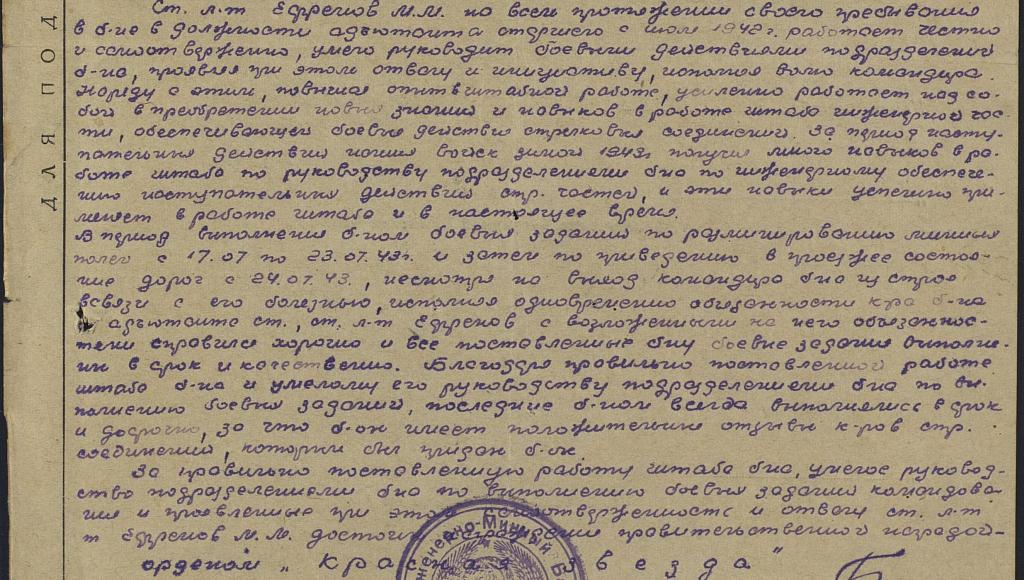 ДЛЯ ПОД
Ст. л-т Ефремов М.М. на всем протяжении своего пребывания
в б-не в должности адъютанта старшего с июля 1942г. работает честно
и самоотверженно, умело руководит боевыми действиями подразделений
б-на, проявляя при этом отвагу и инициативу, исполняя волю командира.
Наряду с этим, повышая опыт в штабной работе, усиленно работает над со-
бой в преобретении новых знаний и навыков в работе штаба инженерной час-
ти, обеспечивающей боевые действия стрелковых соединений. За период насту-
пательных действий наших войск зимой 1943г. получил много навыков в ра-
боте штаба по руководству подразделениями б-на по инженерному обеспече-
нию наступательных действий стр. частей, и эти навыки успешно при-
меняет в работе штаба и в настоящее время.
В период выполнения б-ном боевых заданий по разминированию минных
полей с 17.07 по 23.07.43г. и затем по приведению в проезжее состоя-
ние дорог с 24.07.43, несмотря на выход командира б-на из строя
всвязи с его болезнью, исполняя одновременно обязанности к-ра б-на
и адъютанта ст., ст. л-т Ефремов с возложенными на него обязаннос-
тями справился хорошо и все поставленные б-ну боевые задания выполне-
ны в срок и качественно. Благодаря правильно поставленной работе
штаба б-на и умелому его руководству подразделениями б-на по вы-
полнению боевых заданий, последние б-ном всегда выполнялись в срок
и досрочно, за что б-он имеет положительные отзывы к-ров стр.
соединений, которым был придан б-он.
За правильно поставленную работу штаба б-на, умелое руковод-
ство подразделениями б-на по выполнению боевых заданий командова-
ния и проявленные при этом самоотверженность и отвагу ст. л-т
т Ефремов М.М. достоин правительственной наградой-
орденом „Красная звезда"
женерно-Минный Б